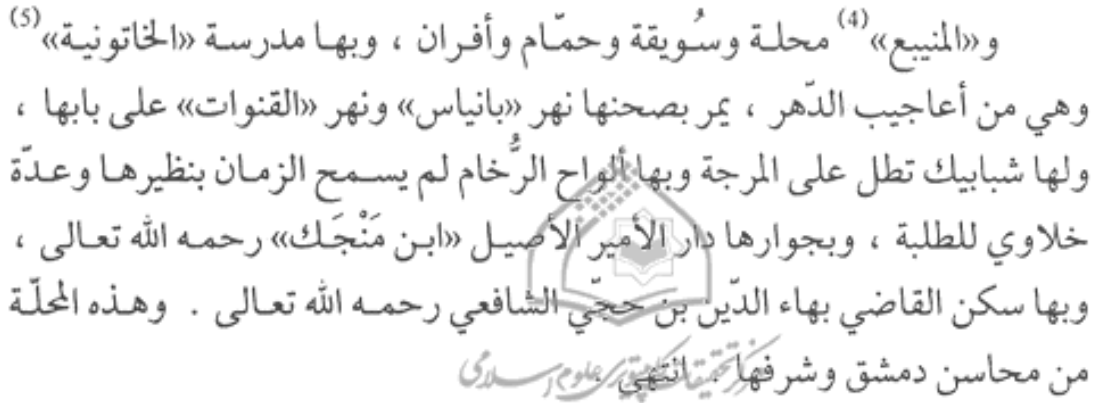 و«المنيبع»(4) محلـة وسُـويقة وحمـّام وأفـران ، وبهـا مدرسـة «الخاتونيـة»(5)
وهي من أعاجيب الدّهر ، يمر بصحنها نهر «بانياس» ونهر «القنوات» على بابها ،
ولها شبابيك تطل على المرجة وبها ألواح الرُّخام لم يسـمح الزمـان بنظيرهـا وعـدّة
خلاوي للطلبة ، وبجوارها دار الأمير الأصيـل «ابـن مَنْجَـك» رحمـه الله تعـالى ،
وبها سكن القاضي بهاء الدّين بن حجّي الشّافعي رحمـه الله تعـالى . وهـذه المحلّـة
من محاسن دمشق وشرفها . انتهى .
مرکز تحقیقات کامپیوتری علوم اسلامی